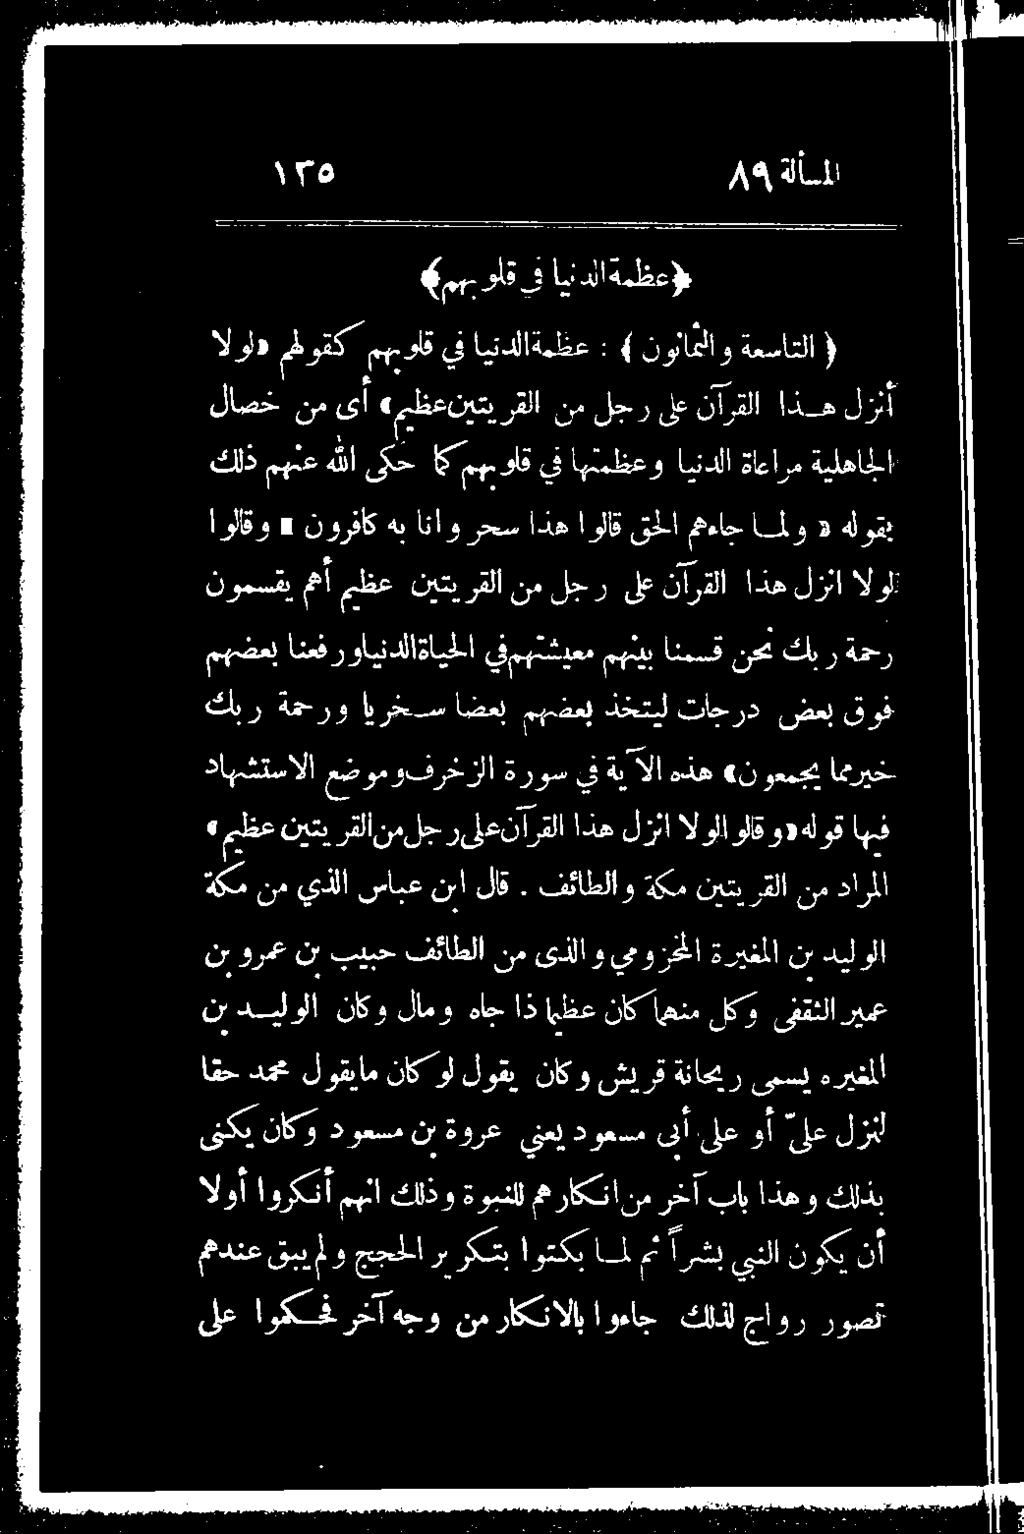 المسألة ٨٩ ١٣٥
﴿عظمة الدنيا في قلوبهم﴾
﴿ التاسعة والثمانون ﴾ : عظمة الدنيا في قلوبهم كقولهم «لولا
أنزل هذا القرآن على رجل من القريتين عظيم» أى من خصال
الجاهلية مراعاة الدنيا وعظمتها في قلوبهم كما حكى الله عنهم ذلك
بقوله « ولما جاءهم الحق قالوا هذا سحر وانا به كافرون * وقالوا
لولا انزل هذا القرآن على رجل من القريتين عظيم أهم يقسمون
رحمة ربك نحن قسمنا بينهم معيشتهم في الحياة الدنيا ورفعنا بعضهم
فوق بعض درجات ليتخذ بعضهم بعضا سخريا ورحمة ربك
خير مما يجمعون» هذه الآية في سورة الزخرف وموضع الاستشهاد
فيها قوله «وقالوا لولا انزل هذا القرآن على رجل من القريتين عظيم»
المراد من القريتين مكة والطائف . قال ابن عباس الذي من مكة
الوليد بن المغيرة المخزومي والذى من الطائف حبيب بن عمرو بن
عمير الثقفى وكل منهما كان عظيما ذا جاه ومال وكان الوليد بن
المغيره يسمى ريحانة قريش وكان يقول لو كان مايقول محمد حقا
لنزل علىّ أو على أبى مسعود يعني عروة بن مسعود وكان يكنى
بذلك وهذا باب آخر من انكارهم للنبوة وذلك انهم أنكروا أولا
أن يكون النبي بشراً ثم لما بكتوا بتكرير الحجج ولم يبق عندهم
تصور رواج لذلك جاءوا بالانكار من وجه آخر فحكموا على